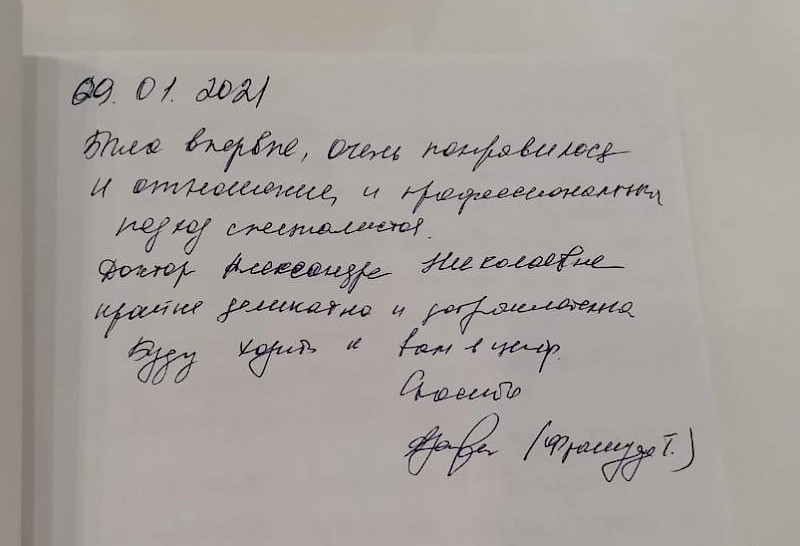 29.01.2021
Была впервые, очень понравилось
и отношение, и профессиональный
подход специалистов.
Доктор Александра Николаевна
крайне деликатна и доброжелательна
Буду ходить к вам в центр.
Спасибо
Т.)